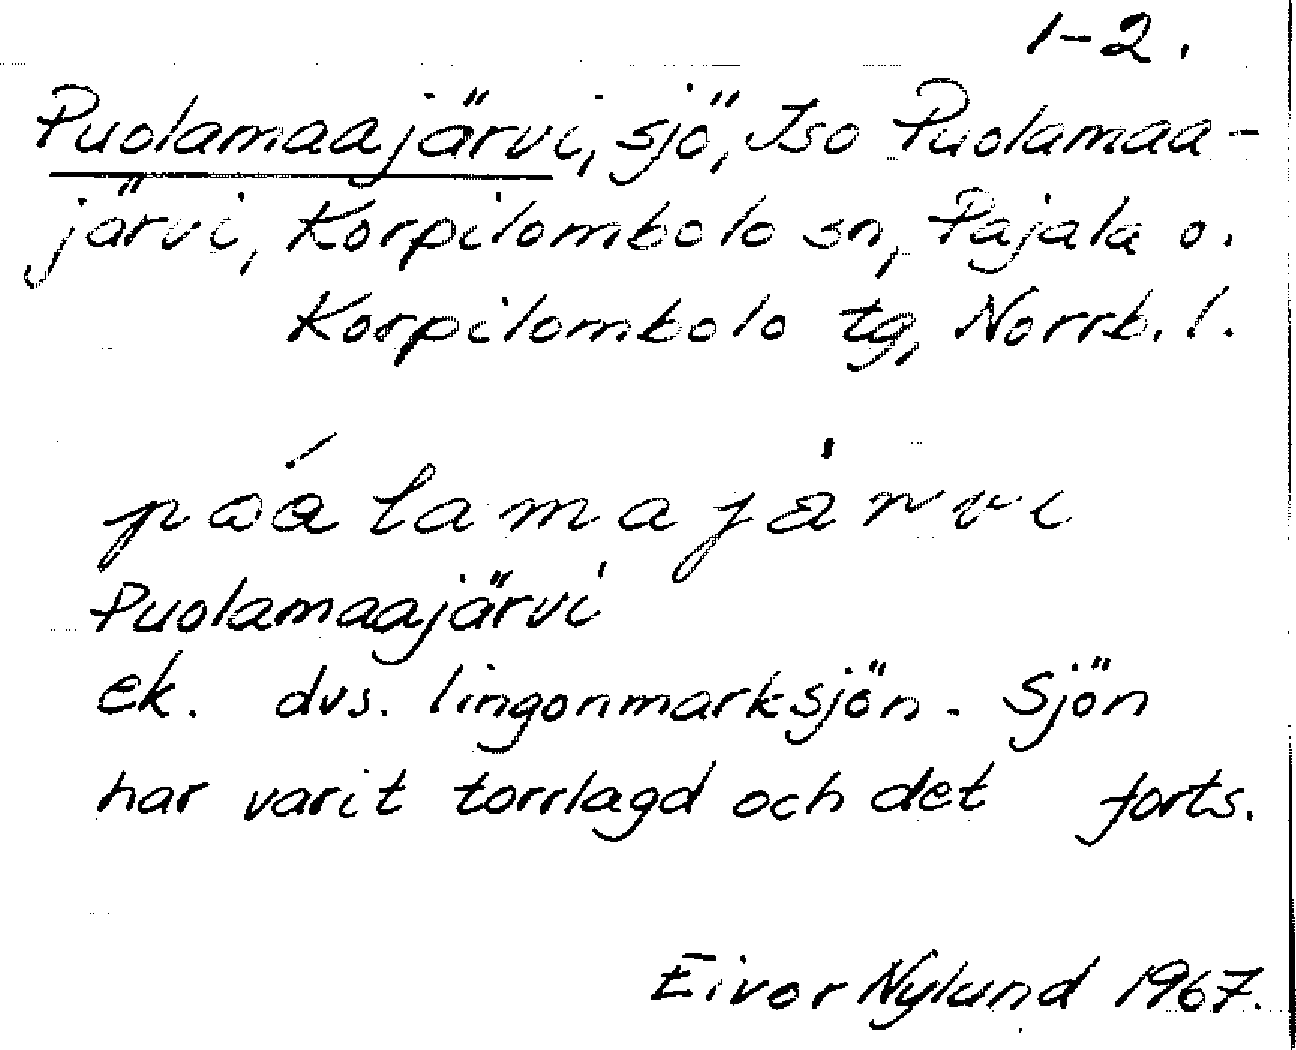 1-2.
Puolamaajärvi, sjö, Iso Puolamaa-
järvi, Korpilombolo sn, Pajala o.
Korpilombolo tg, Norrb. l.
Puolamaajärvi
ek. dvs. lingonmarksjön. Sjön
har varit torrlagd och det forts.
Eivor Nylund 1967.